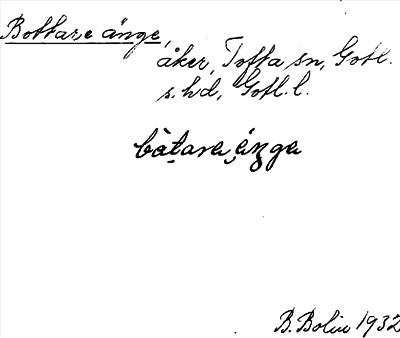 Bottare änge,
åker, Tofta sn, Gotl.
s. hd, Gotl. l.
bàtara ánga
B. Bolin 1932